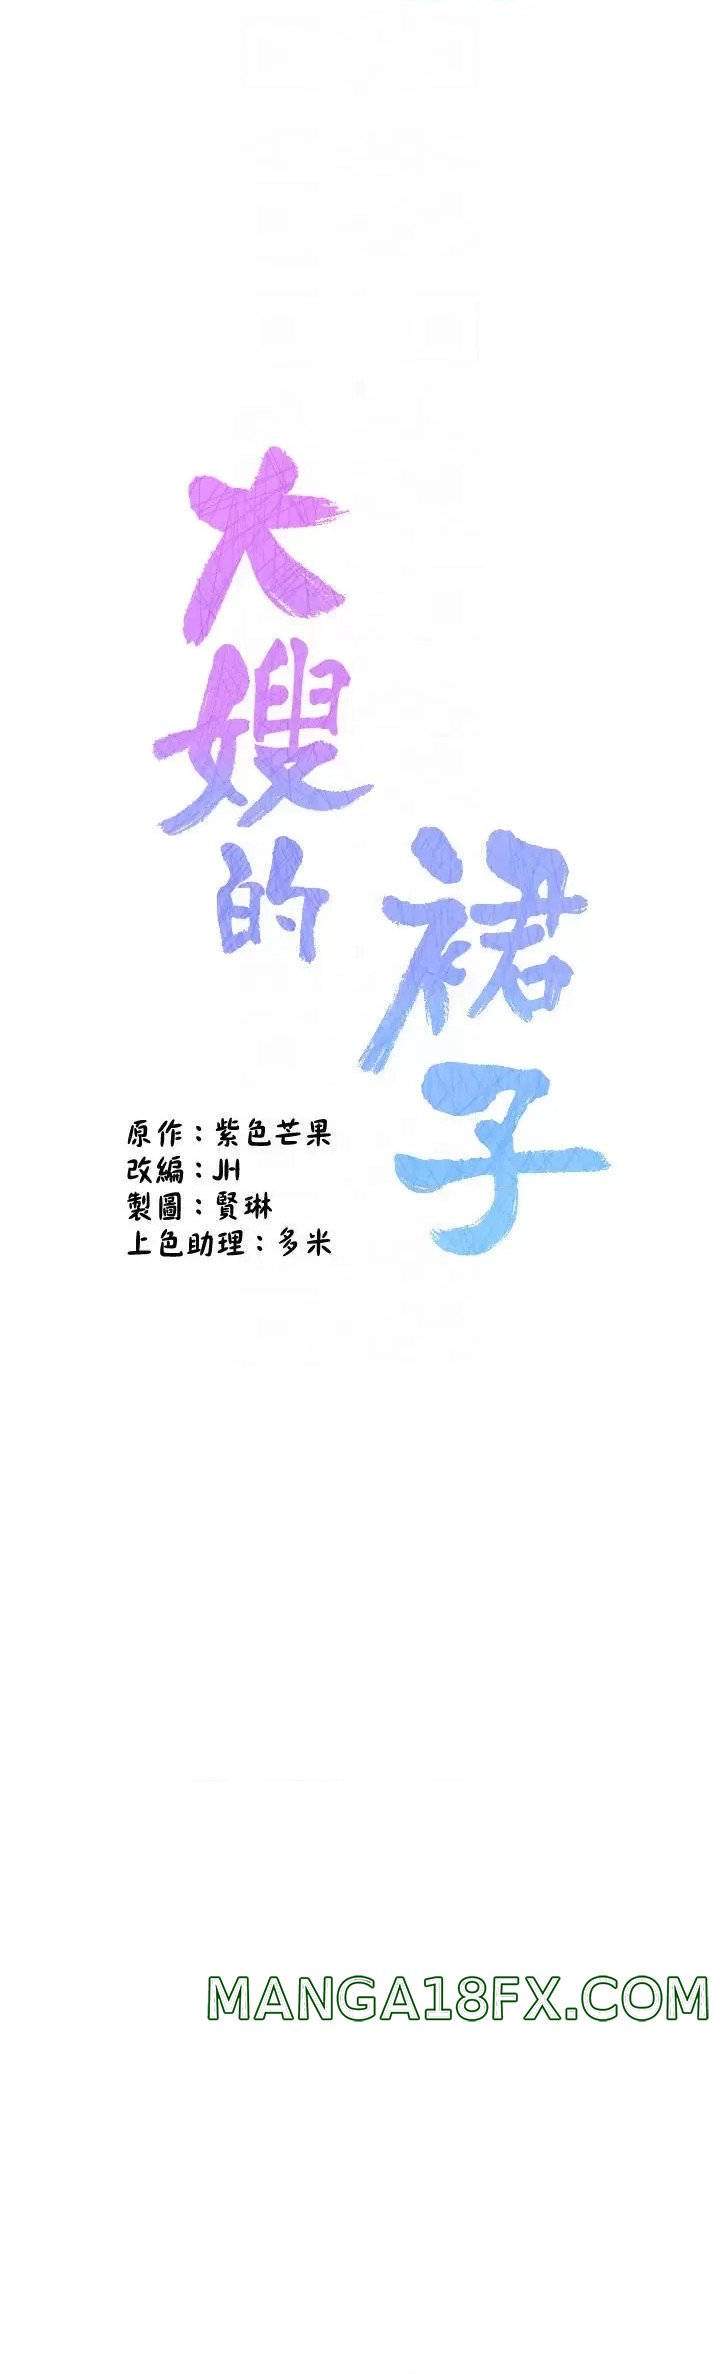 大嫂的
裙子
原作：紫色芒果
改編：JH
製圖：賢琳
上色助理：多米
MANGA18FX.COM